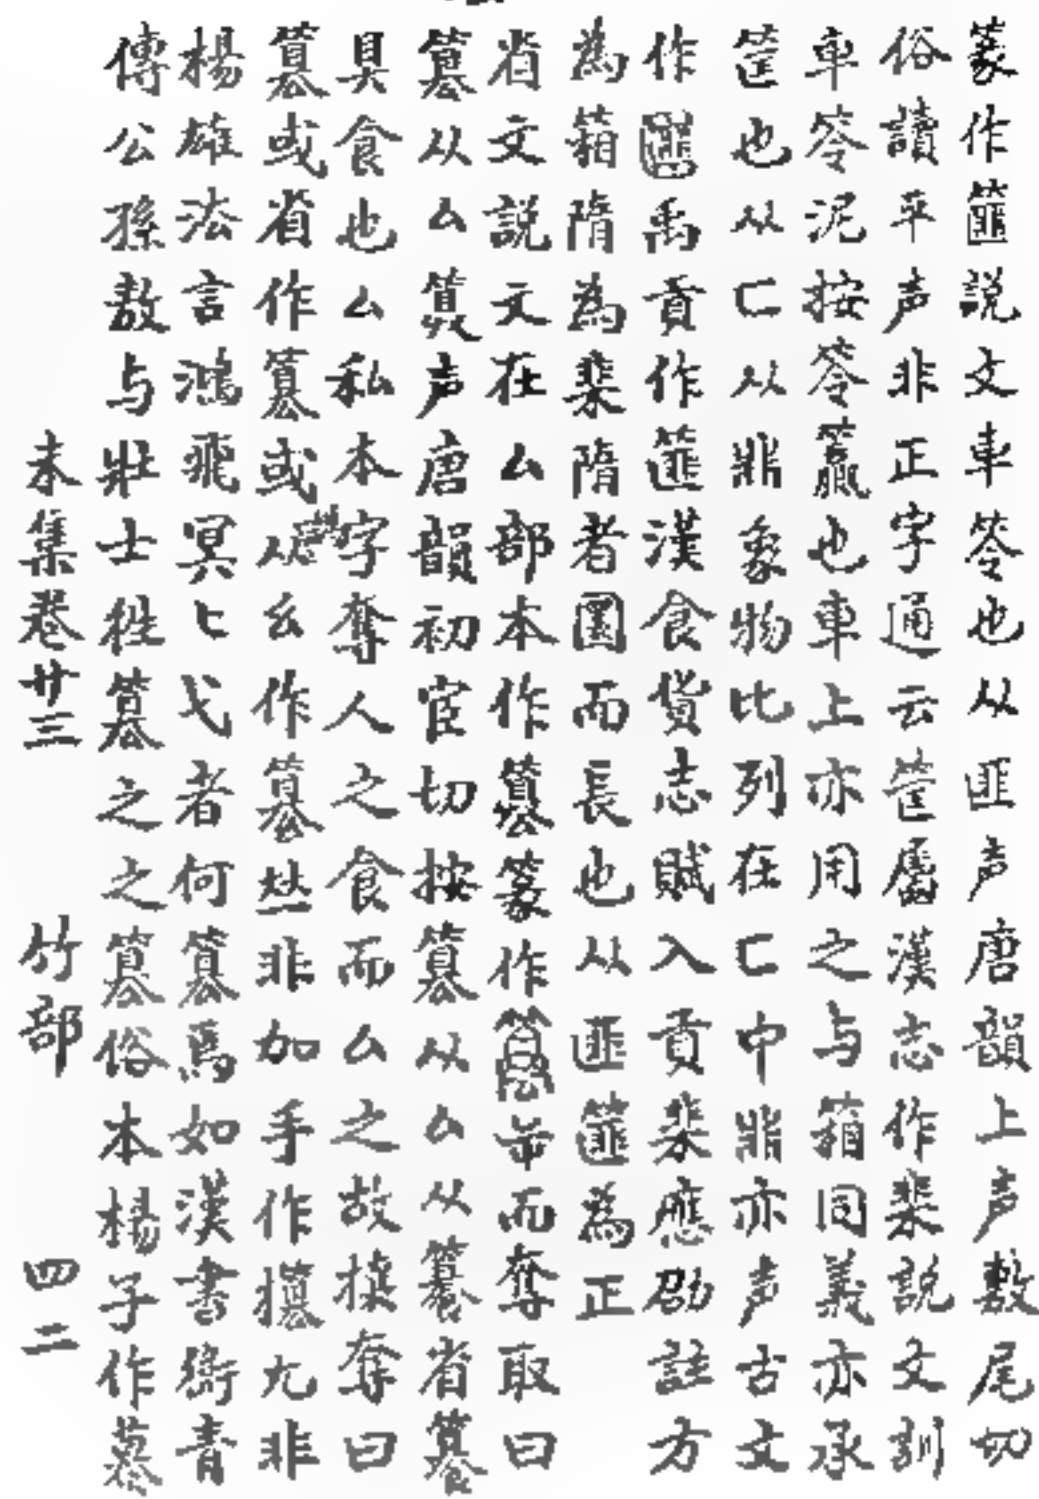 篆作篚説文車笭也从匪声唐韻上声敷尾切
俗讀平声非正字通云筐屬漢志作棐説文訓
車笭泥按笭籯也車上亦用之与箱同義亦承
筐也从匚从非象物比列在匚中非亦声古文
作禹貢作篚漢食貨志賦入貢棐應劭註方
為箱隋為棐隋者圓而長也从匪篚為正
省文説文在厶部本作篡篆作並而奪取曰
篡从厶算声唐韻初宦切按篡从厶从簒省簒
具食也厶私本字奪人之食而厶之故搂奪曰
篡或省作篡或从幺作篡並非加手作攥尤非
楊雄法言鴻飛冥匕弋者何篡焉如漢書衛青
傳公孫敖与壯士徃篡之之篡俗本楊子作慕
未集卷廿三 竹部 四二